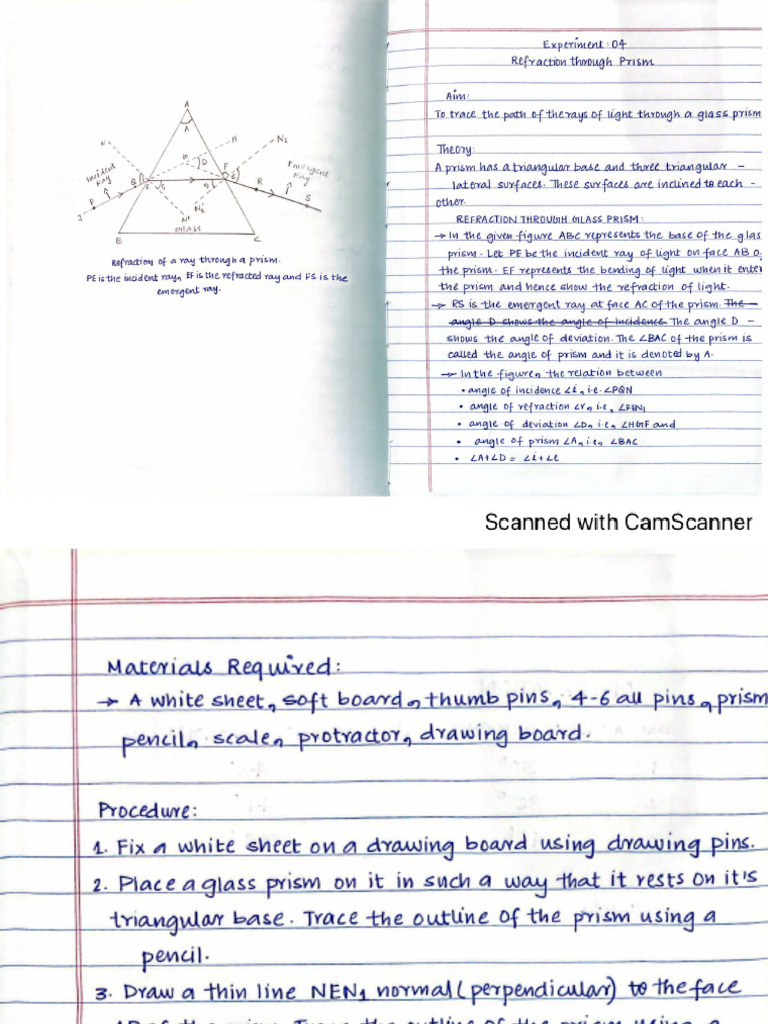 A
A
N
H
N2
M
D
Incident
Ray
Emergent
Ray
F
P
Q
E
R
S
J
N1
N2
B
Glass
C
Refraction of a ray through a prism.
PE is the incident ray, EF is the refracted ray and FS is the
emergent ray.
Experiment: 04
Refraction through Prism
Aim:
To trace the path of the rays of light through a glass prism
Theory:
A prism has a triangular base and three triangular -
lateral surfaces. These surfaces are inclined to each -
other.
REFRACTION THROUGH GLASS PRISM:
→ In the given figure ABC represents the base of the glas
prism. Let PE be the incident ray of light on face AB o
the prism. EF represents the bending of light when it enter
the prism and hence show the refraction of light.
→ RS is the emergent ray at face AC of the prism. The -
angle D shows the angle of incidence. The angle D -
shows the angle of deviation. The ∠BAC of the prism is
called the angle of prism and it is denoted by A.
→ In the figure, the relation between
• angle of incidence ∠i, i.e. ∠PQN
• angle of refraction ∠r, i.e, ∠FEN1
• angle of deviation ∠D, i.e, ∠HGF and
• angle of prism ∠A, i.e, ∠BAC
• ∠A+∠D = ∠i+∠e
Scanned with CamScanner
Materials Required:
→ A white sheet, soft board, thumb pins, 4-6 all pins, prism
pencil, scale, protractor, drawing board.
Procedure:
1. Fix a white sheet on a drawing board using drawing pins.
2. Place a glass prism on it in such a way that it rests on it's
triangular base. Trace the outline of the prism using a
pencil.
3. Draw a thin line NEN1 normal (perpendicular) to the face